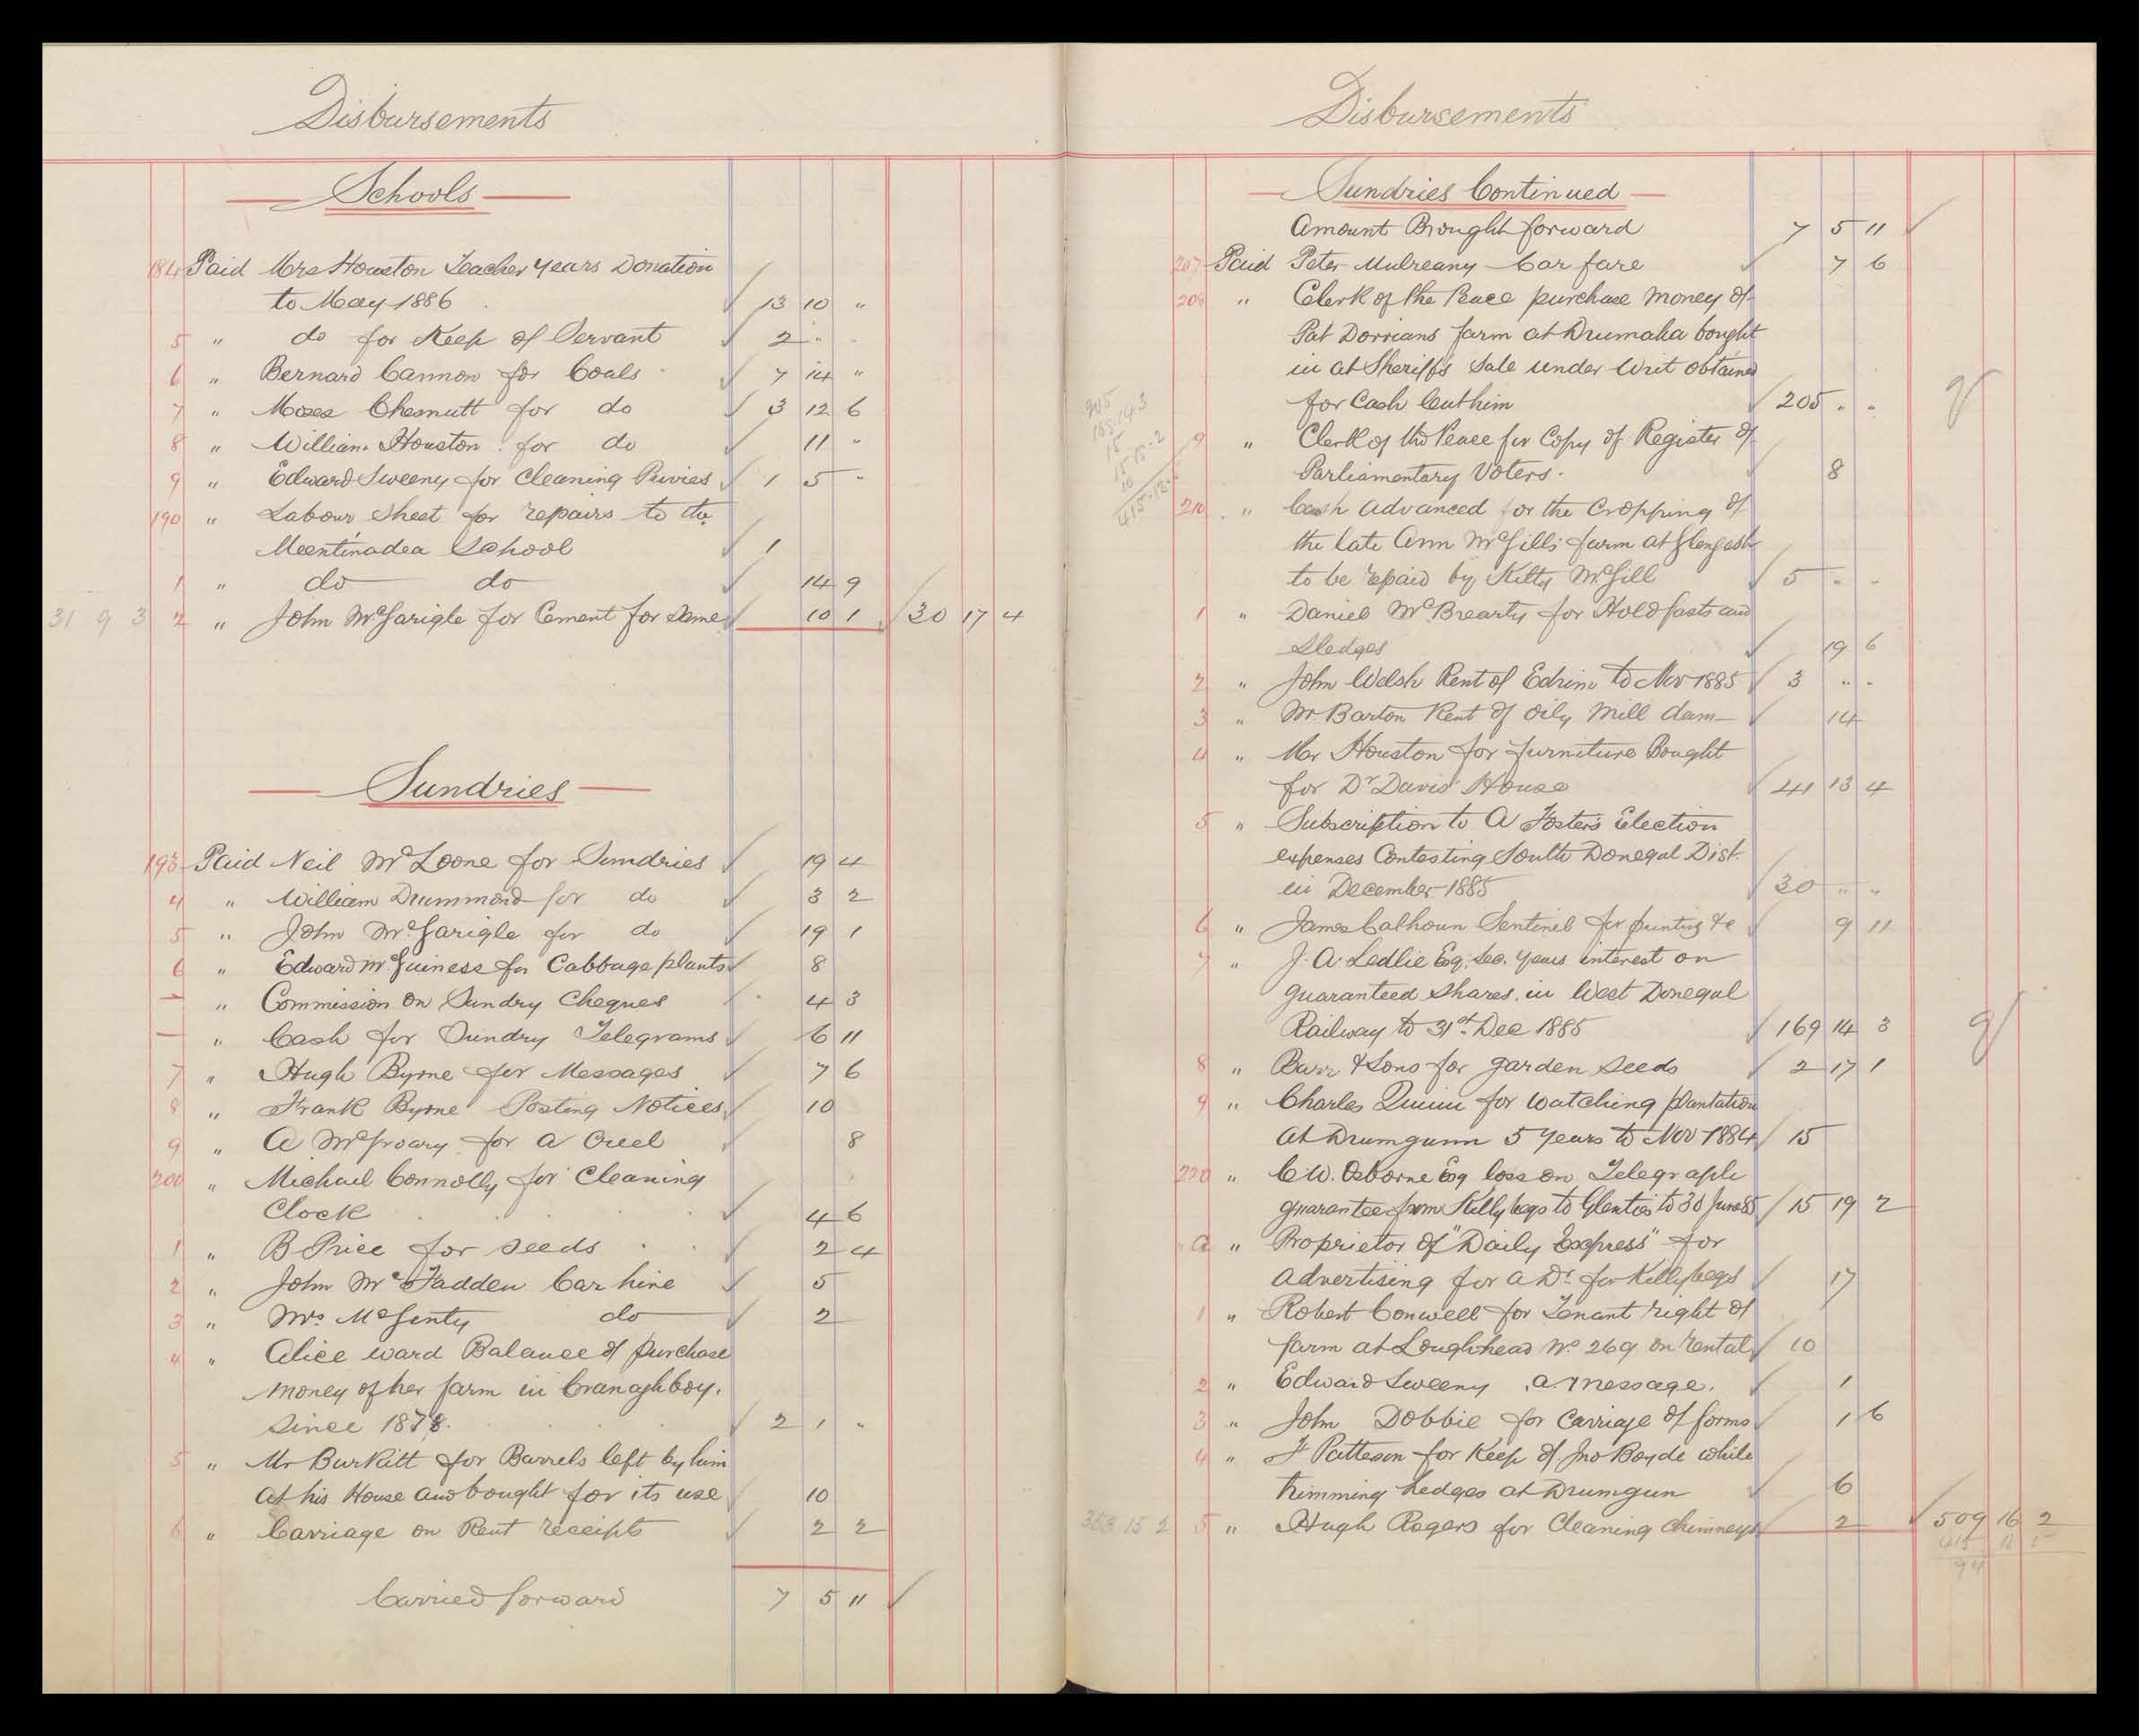 Disbursements
Schools
184 Paid Mrs Houston Teacher Years Donation
to May 1886 13 10 "
5 " do for Keep of Servant 2 " "
6 " Bernard Cannon for Coals 7 14 "
7 " Moses Chesnutt for do 3 12 6
8 " William Houston for do 11 "
9 " Edward Sweeny for Cleaning Privies 1 5 "
190 " Labour Sheet for repairs to the
Meentinadea School 1
1 " do do 14 9
31 9 3 2 " John McGarigle for Cement for Same 10 1 30 17 4
Sundries
193 Paid Neil McLoone for Sundries 19 4
4 " William Drummond for do 3 2
5 " John McGarigle for do 19 1
6 " Edward McGuiness for Cabbage plants 8
— " Commission on Sundry Cheques 4 3
— " Cash for Sundry Telegrams 6 11
7 " Hugh Byrne for Messages 7 6
8 " Frank Byrne Posting Notices 10
9 " A McGroary for a Creel 8
200 " Michael Connolly for Cleaning
Clock 4 6
1 " B Price for Seeds 2 4
2 " John McFadden Car hire 5
3 " Mrs McGinty do 2
4 " Alice Ward Balance of purchase
money of her farm in Cranaghboy.
Since 1878. 2 1 "
5 " Mr Burkitt for Barrels left by him
at his House and bought for its use 10
6 " Carriage on Rent receipts 2 2
Carried forward 7 5 11
Disbursements
Sundries Continued
Amount Brought forward 7 5 11
207 Paid Peter Mulreany Car fare 7 6
208 " Clerk of the Peace purchase money of
Pat Dorrians farm at Drumaha bought
in at Sheriff's Sale under Writ obtained
for Cash lent him 205 " "
9 " Clerk of the Peace for Copy of Register of
Parliamentary Voters. 8
210 " Cash advanced for the Cropping of
the late Ann McGill's farm at Glengesh
to be repaid by Kitty McGill 5 " "
1 " Daniel McBrearty for Holdfasts and
Sledges 19 6
2 " John Welsh Rent of Edrim to Nov 1885 3 " "
3 " Mr Barton Rent of Oily Mill dam 14
4 " Mr Houston for furniture Bought
for Dr Davis' House 41 13 4
5 " Subscription to A Foster's Election
expenses Contesting South Donegal Dist.
in December 1885 30 " "
6 " James Calhoun Sentinel for printing &c 9 11
7 " J. A. Ledlie Esq. Sec. years interest on
guaranteed Shares in West Donegal
Railway to 31st Dec 1885 169 14 3
8 " Barr & Sons for garden Seeds 2 17 1
9 " Charles Quinn for watching plantation
at Drumgunn 5 years to Nov 1884 15
220 " C. W. Osborne Esq loss on Telegraph
guarantee from Killybegs to Glenties to 30 June 85 15 19 2
a " Proprietor of "Daily Express" for
Advertising for a Dr. for Killybegs 17
1 " Robert Conwell for Tenant right of
farm at Loughhead No 269 on rental 10
2 " Edward Sweeny a message. 1
3 " John Dobbie for Carriage of forms 1 6
4 " F Patteson for Keep of Jno Boyde while
trimming hedges at Drumgun 6
353 15 2 5 " Hugh Rogers for Cleaning Chimneys 2 509 16 2
94